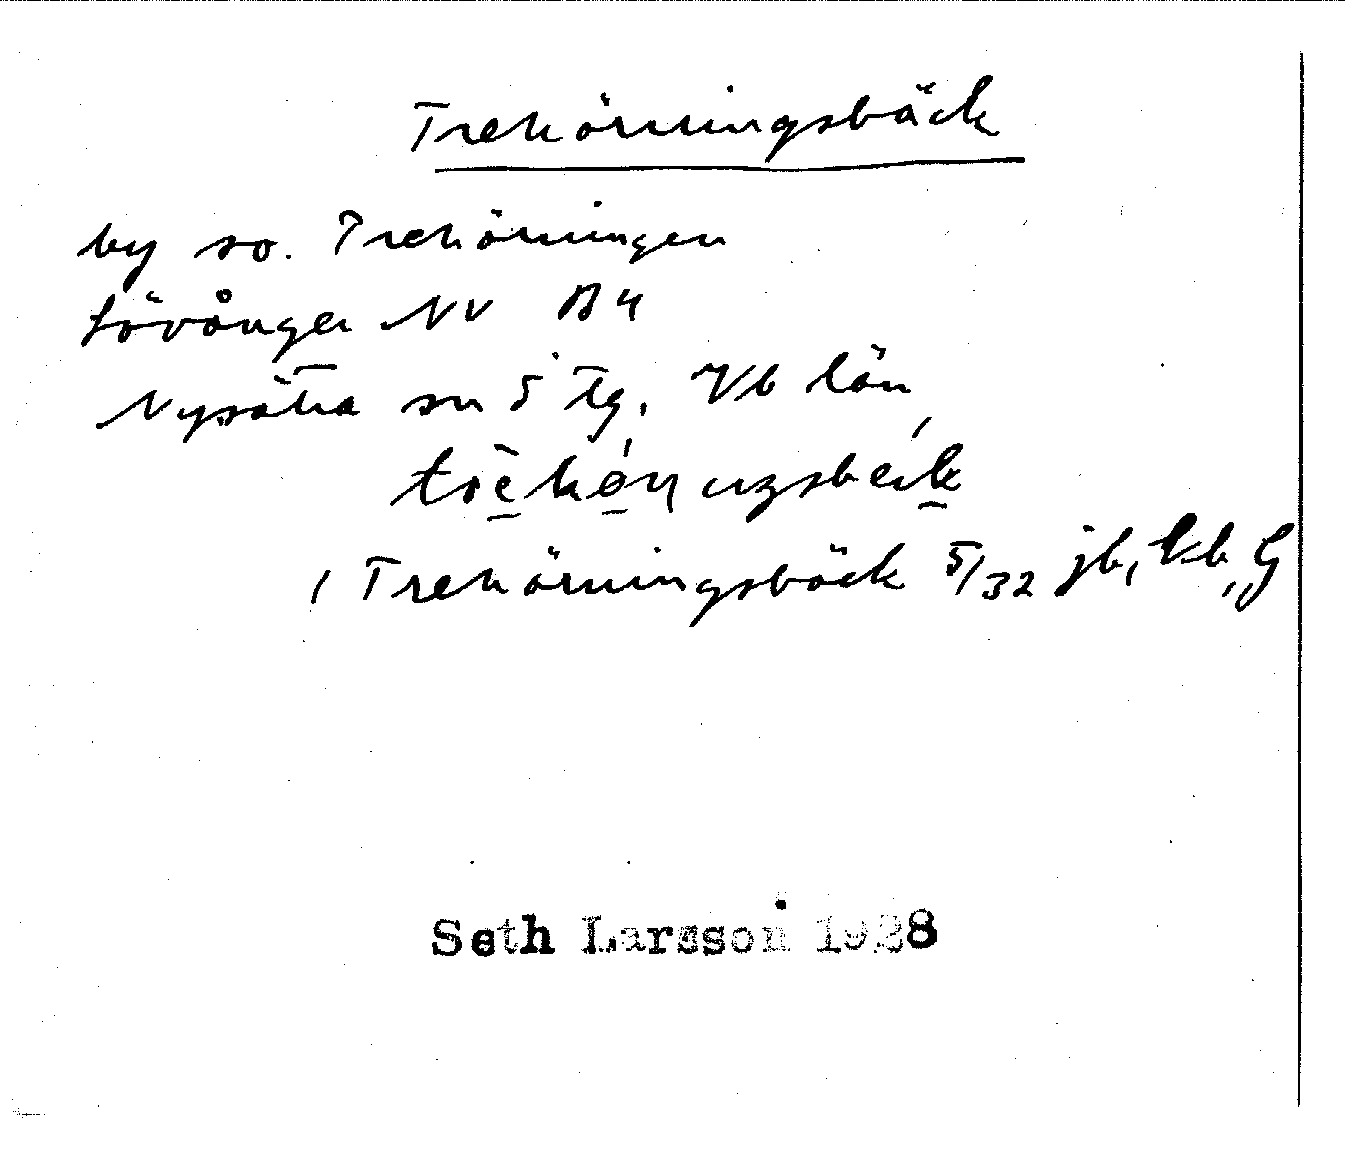 Trehörningsbäck
by so. Trehörningen
Lövånger NV B4
Nysätra sn S tg. Vb län
(Trehörningsbäck 5/32 jb, kb, G
Seth Larsson 1928